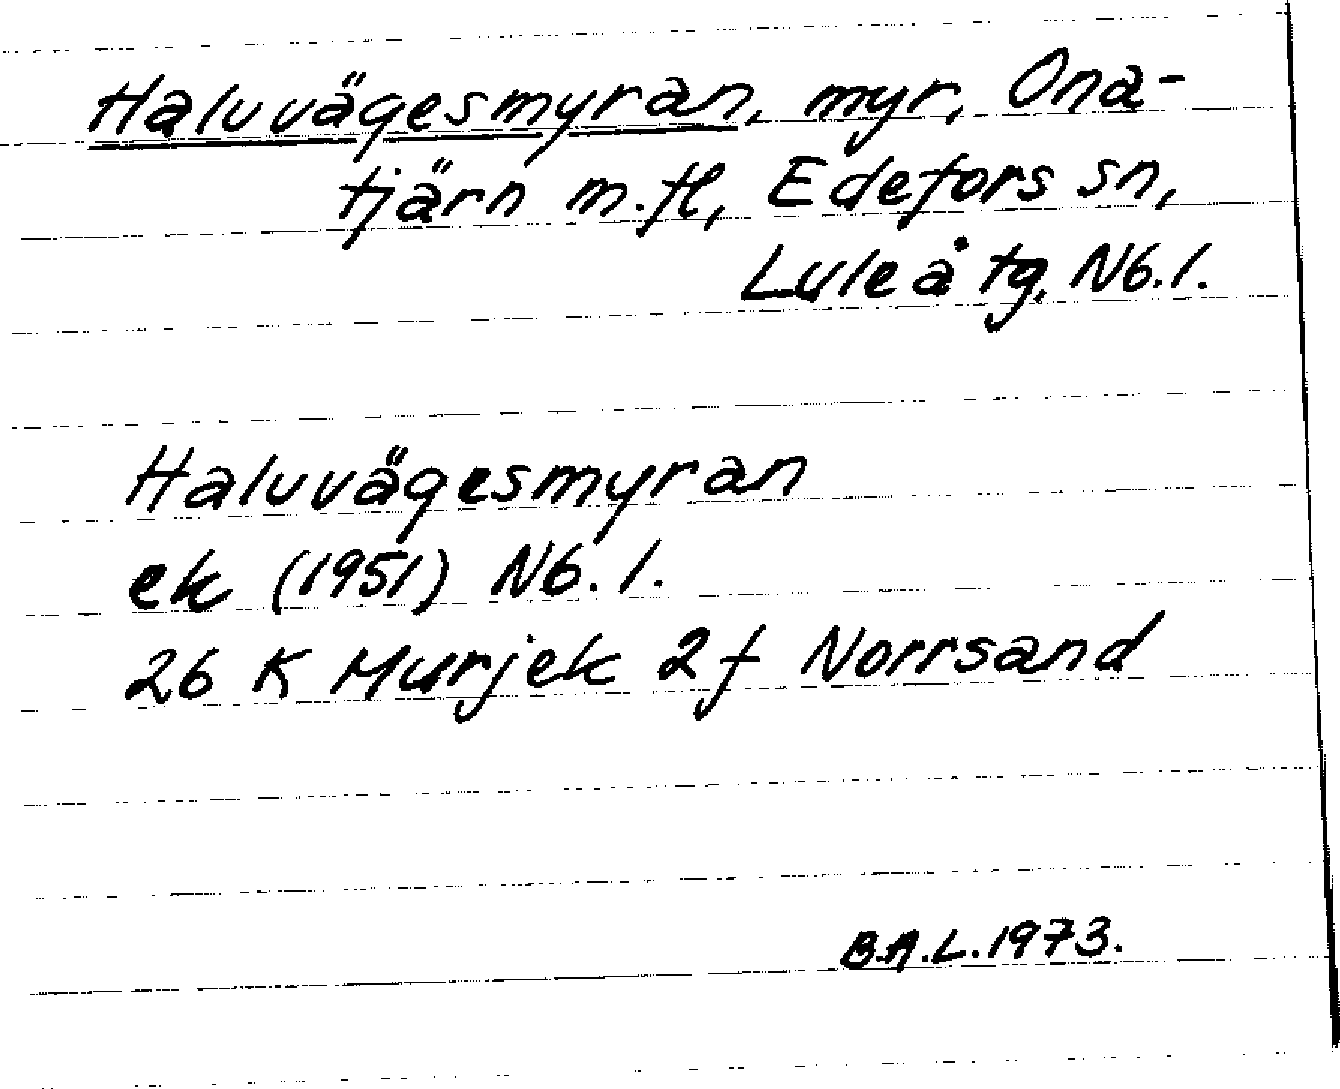 Halvvägesmyran, myr, Ona-
tjärn m.fl, Edefors sn,
Luleå tg, Nb.l.
Halvvägesmyran
ek (1951) Nb. l.
26 K Murjek 2f Norrsand
B.A.L. 1973.